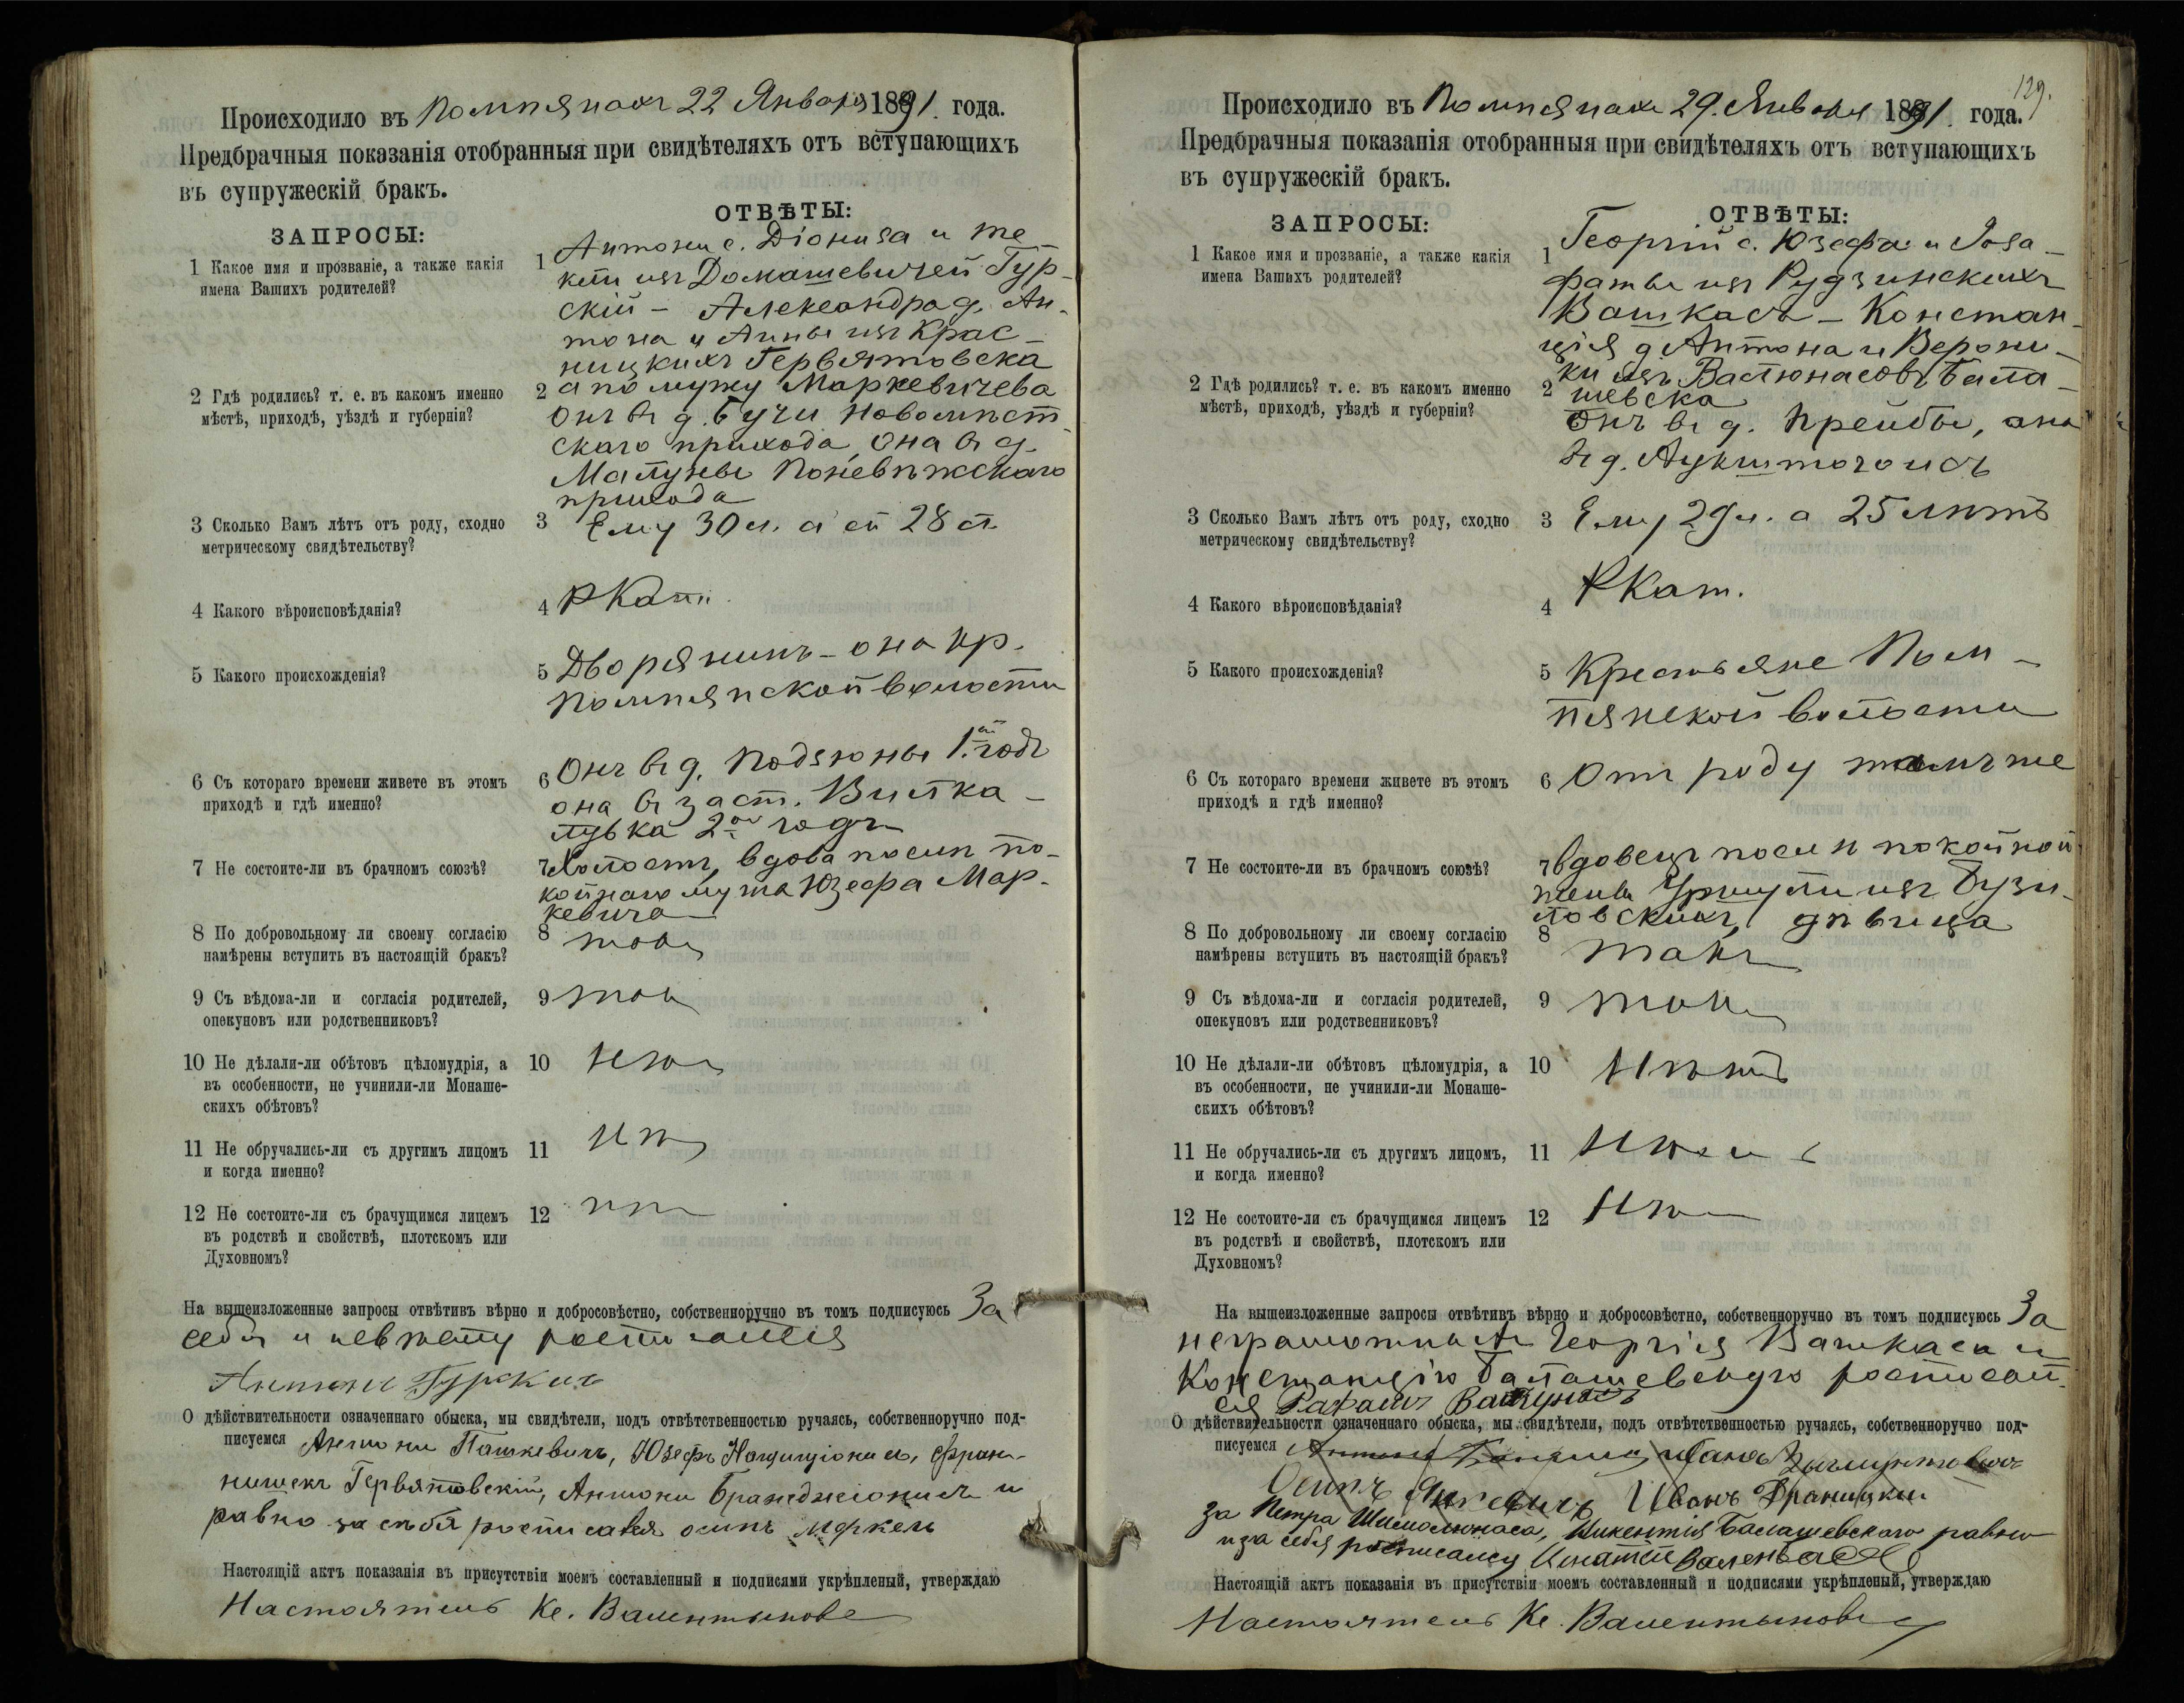 Происходило въ Помпянахъ 22 Января 1891. года.
Предбрачныя показанія отобранныя при свидѣтеляхъ отъ вступающихъ
въ супружескій бракъ.
ЗАПРОСЫ:
ОТВѢТЫ:
1 Какое имя и прозваніе, а также какія
имена Вашихъ родителей?
1 Антони с. Діониза и Те-
кли изъ Домашевичей Гур-
скій - Александра д. Ан-
тона и Анны изъ Крас-
ницкихъ Гервятовска
а по мужу Маркевичева
2 Гдѣ родились? т. е. въ какомъ именно
мѣстѣ, приходѣ, уѣздѣ и губерніи?
2 Онъ въ д. Бучи Новомѣст
скаго прихода, она въ д.
Малуны Поневѣжскаго
прихода
3 Сколько Вамъ лѣтъ отъ роду, сходно
метрическому свидѣтельству?
3 Ему 30 л. а ей 28 л.
4 Какого вѣроисповѣданія?
4 РКат.
5 Какого происхожденія?
5 Дворянинъ - она кр.
Помпянской волости
6 Съ котораго времени живете въ этомъ
приходѣ и гдѣ именно?
6 Онъ въ д. Подзюны 1.ый годъ
она въ заст. Вилка-
лувка 2ой годъ
7 Не состоите-ли въ брачномъ союзѣ?
7 Холостъ, вдова послѣ по-
койнаго мужа Юзефа Мар-
кевича
8 По добровольному ли своему согласію
намѣрены вступить въ настоящій бракъ?
8 такъ
9 Съ вѣдома-ли и согласія родителей,
опекуновъ или родственниковъ?
9 такъ
10 Не дѣлали-ли обѣтовъ цѣломудрія, а
въ особенности, не учинили-ли Монаше-
скихъ обѣтовъ?
10 нѣтъ
11 Не обручались-ли съ другимъ лицомъ
и когда именно?
11 нѣтъ
12 Не состоите-ли съ брачущимся лицемъ
въ родствѣ и свойствѣ, плотскомъ или
Духовномъ?
12 нѣтъ
На вышеизложенные запросы отвѣтивъ вѣрно и добросовѣстно, собственноручно въ томъ подписуюсь За
себя и невѣсту росписался
Антони Гурскій
О дѣйствительности означеннаго обыска, мы свидѣтели, подъ отвѣтственностью ручаясь, собственноручно под-
писуемся Антони Пашкевичъ, Юзефъ, Фран-
цишекъ Гервятовскій, Антони и
равно за себя росписался осипъ Меркель
Настоящій актъ показанія въ присутствіи моемъ составленный и подписями укрѣпленый, утверждаю
Настоятель Кс. Валентынови
129.
Происходило въ Помпянахъ 29. Января 1891. года.
Предбрачныя показанія отобранныя при свидѣтеляхъ отъ вступающихъ
въ супружескій бракъ.
ЗАПРОСЫ:
ОТВѢТЫ:
1 Какое имя и прозваніе, а также какія
имена Вашихъ родителей?
1 Георгій с. Юзефа и Роза-
фаты изъ Рудзинскихъ
Вашкасъ - Констан-
ція д Антона и Верони-
ки изъ Вастюнасовъ Бала-
шевска
2 Гдѣ родились? т. е. въ какомъ именно
мѣстѣ, приходѣ, уѣздѣ и губерніи?
2 Онъ въ д. Крейбы, она
въ д. Аукштогоисъ
3 Сколько Вамъ лѣтъ отъ роду, сходно
метрическому свидѣтельству?
3 Ему 29 л. а 25 лѣтъ
4 Какого вѣроисповѣданія?
4 РКат.
5 Какого происхожденія?
5 Крестьяне Пом-
пянской волости
6 Съ котораго времени живете въ этомъ
приходѣ и гдѣ именно?
6 Отъ роду тамъ же
7 Не состоите-ли въ брачномъ союзѣ?
7 вдовецъ послѣ покойной
жены Уршули изъ Бузи-
ловскихъ, дѣвица
8 По добровольному ли своему согласію
намѣрены вступить въ настоящій бракъ?
8 такъ
9 Съ вѣдома-ли и согласія родителей,
опекуновъ или родственниковъ?
9 такъ
10 Не дѣлали-ли обѣтовъ цѣломудрія, а
въ особенности, не учинили-ли Монаше-
скихъ обѣтовъ?
10 Нѣтъ
11 Не обручались-ли съ другимъ лицомъ,
и когда именно?
11 Нѣтъ
12 Не состоите-ли съ брачущимся лицемъ
въ родствѣ и свойствѣ, плотскомъ или
Духовномъ?
12 Нѣтъ
На вышеизложенные запросы отвѣтивъ вѣрно и добросовѣстно, собственноручно въ томъ подписуюсь За
неграмотныхъ Георгія Вашкаса и
Констанцію Балашевскую росписал
ся Рафаилъ
О дѣйствительности означеннаго обыска, мы свидѣтели, подъ отвѣтственностью ручаясь, собственноручно под-
писуемся
Осипъ Янкевичъ Иванъ Враницкий
за Петра Шимолюнаса, Викентія Балашевскаго равно
и за себя росписался Игнатій
Настоящій актъ показанія въ присутствіи моемъ составленный и подписями укрѣпленый, утверждаю
Настоятель Кс. Валентынови